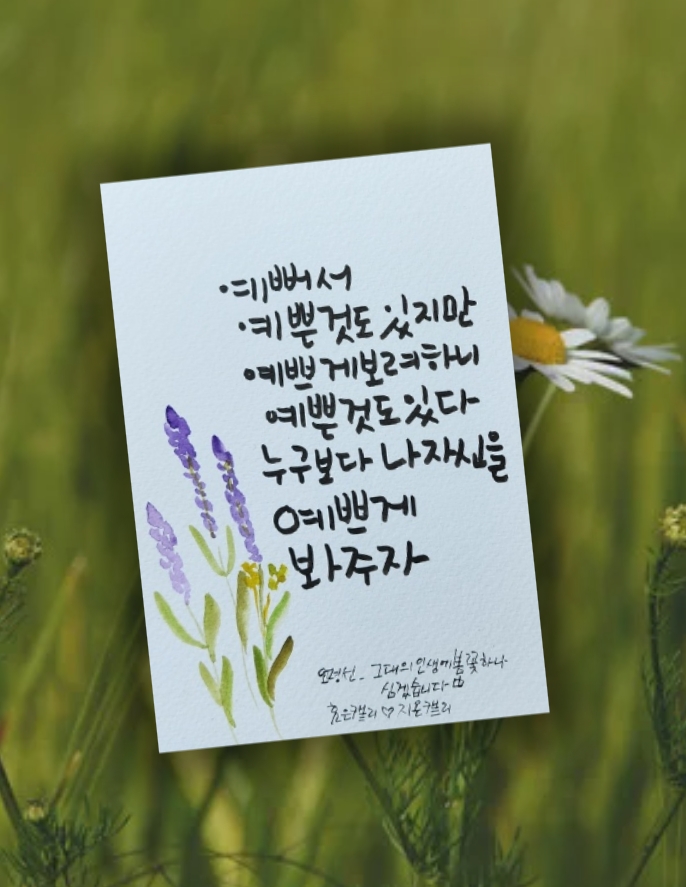 예뻐서
예쁜것도 있지만
예쁘게보려하니
예쁜것도있다
누구보다 나자신을
예쁘게
봐주자
오평선_ 그대의 인생에 봄꽃하나
심겠습니다 中
지온캘리